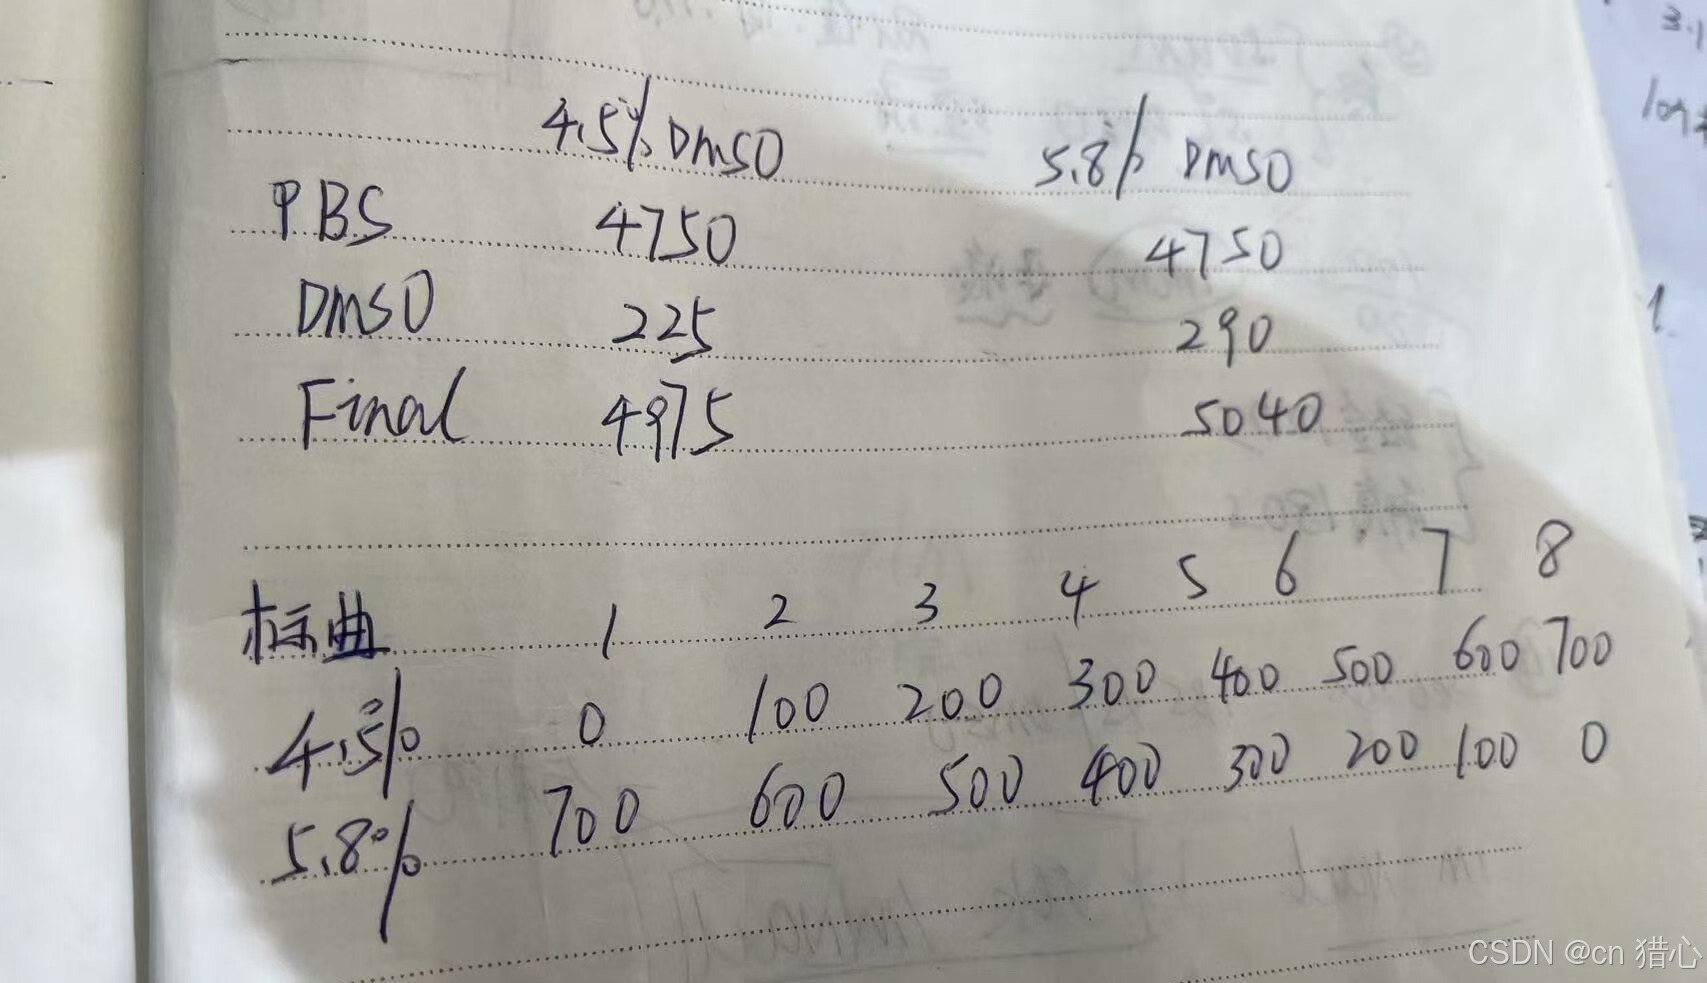 4.5% DMSO 5.8% DMSO
PBS 4750 4750
DMSO 225 290
Final 4975 5040
标曲 1 2 3 4 5 6 7 8
4.5% 0 100 200 300 400 500 600 700
5.8% 700 600 500 400 300 200 100 0
3.1
1.
CSDN @cn 猎心